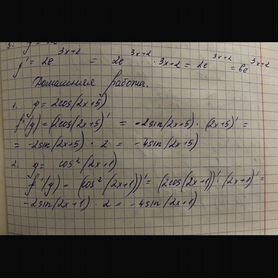 y' = 2e^(3x+2) = 2e^(3x+2) · 3x+2 = 2e^(3x+2) = 6e^(3x+2)
Домашняя работа.
1. y = 2cos(2x+5)
f'(y) = (2cos(2x+5))' = -2sin(2x+5) · (2x+5)' =
= -2sin(2x+5) · 2 = -4sin(2x+5)
2. y = cos²(2x+1)
f'(y) = (cos²(2x+1))' = (2cos(2x+1))' · (2x+1)' =
-2sin(2x+1) · 2 = -4sin(2x+1)